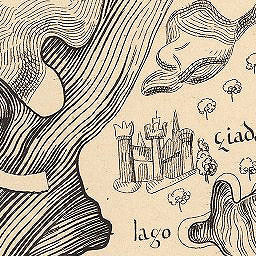 giad
lago